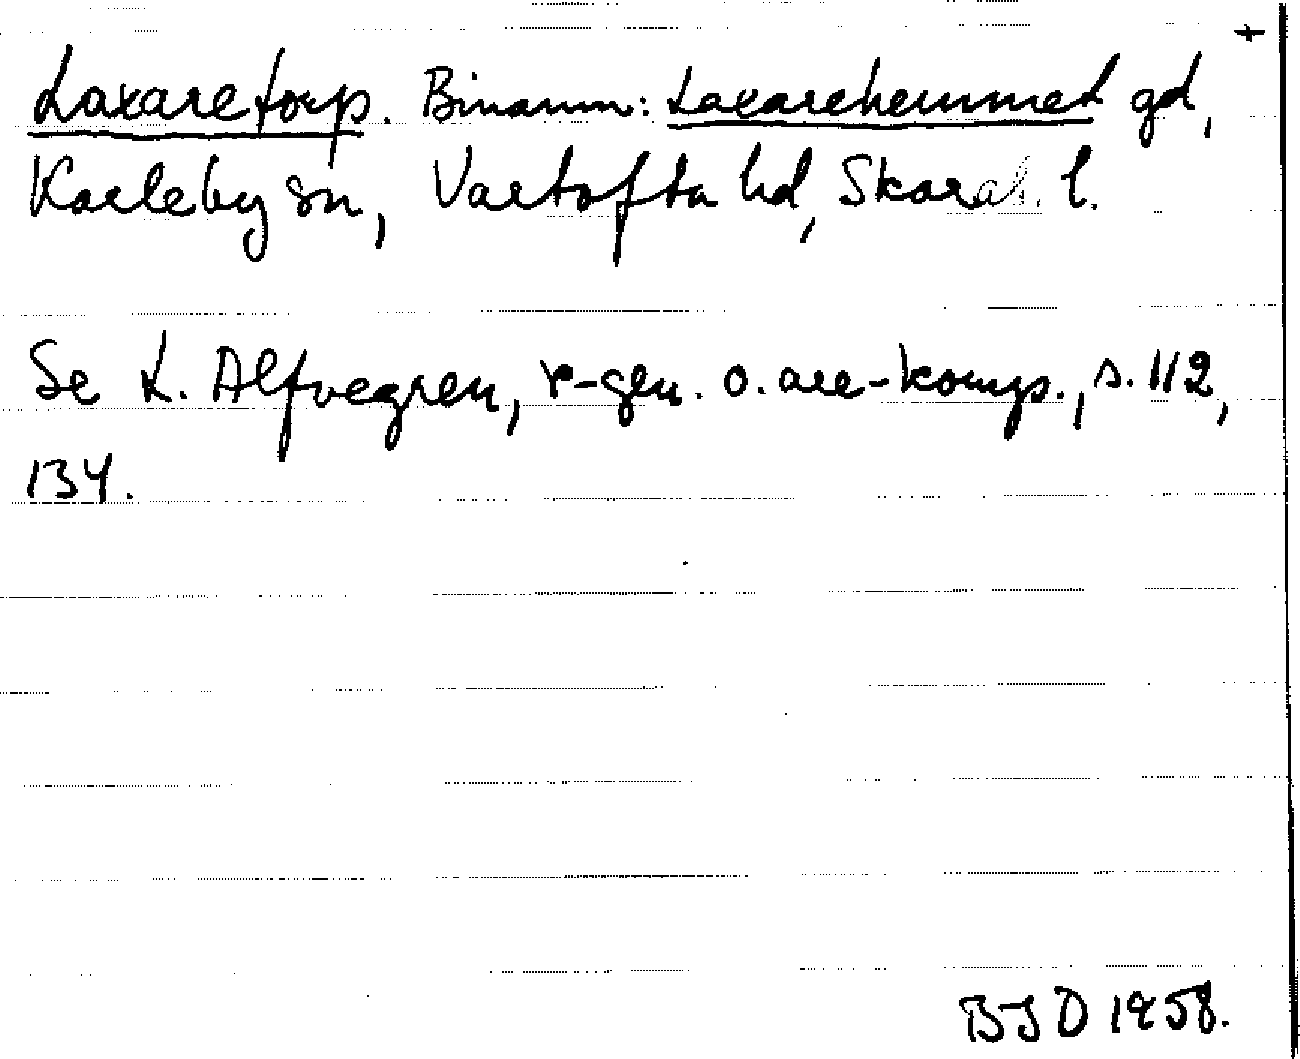 +
Laxaretorp. Binamn: Laxarehemmet gd,
Karleby sn, Vartofta hd, Skarab. l.
Se L. Alfvegren, r-gen. o. are-komp., s. 112,
134.
BJD 1958.